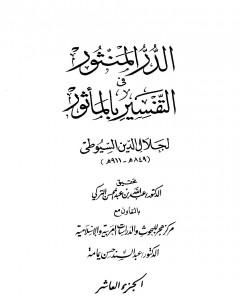 الدر المنثور
في
التفسير بالمأثور
لجلال الدين السيوطي
(٨٤٩هـ - ٩١١هـ)
تحقيق
الدكتور عبد الله بن عبد المحسن التركي
بالتعاون مع
مركز هجر للبحوث والدراسات العربية والإسلامية
الدكتور عبد السند حسن يمامة
الجزء العاشر